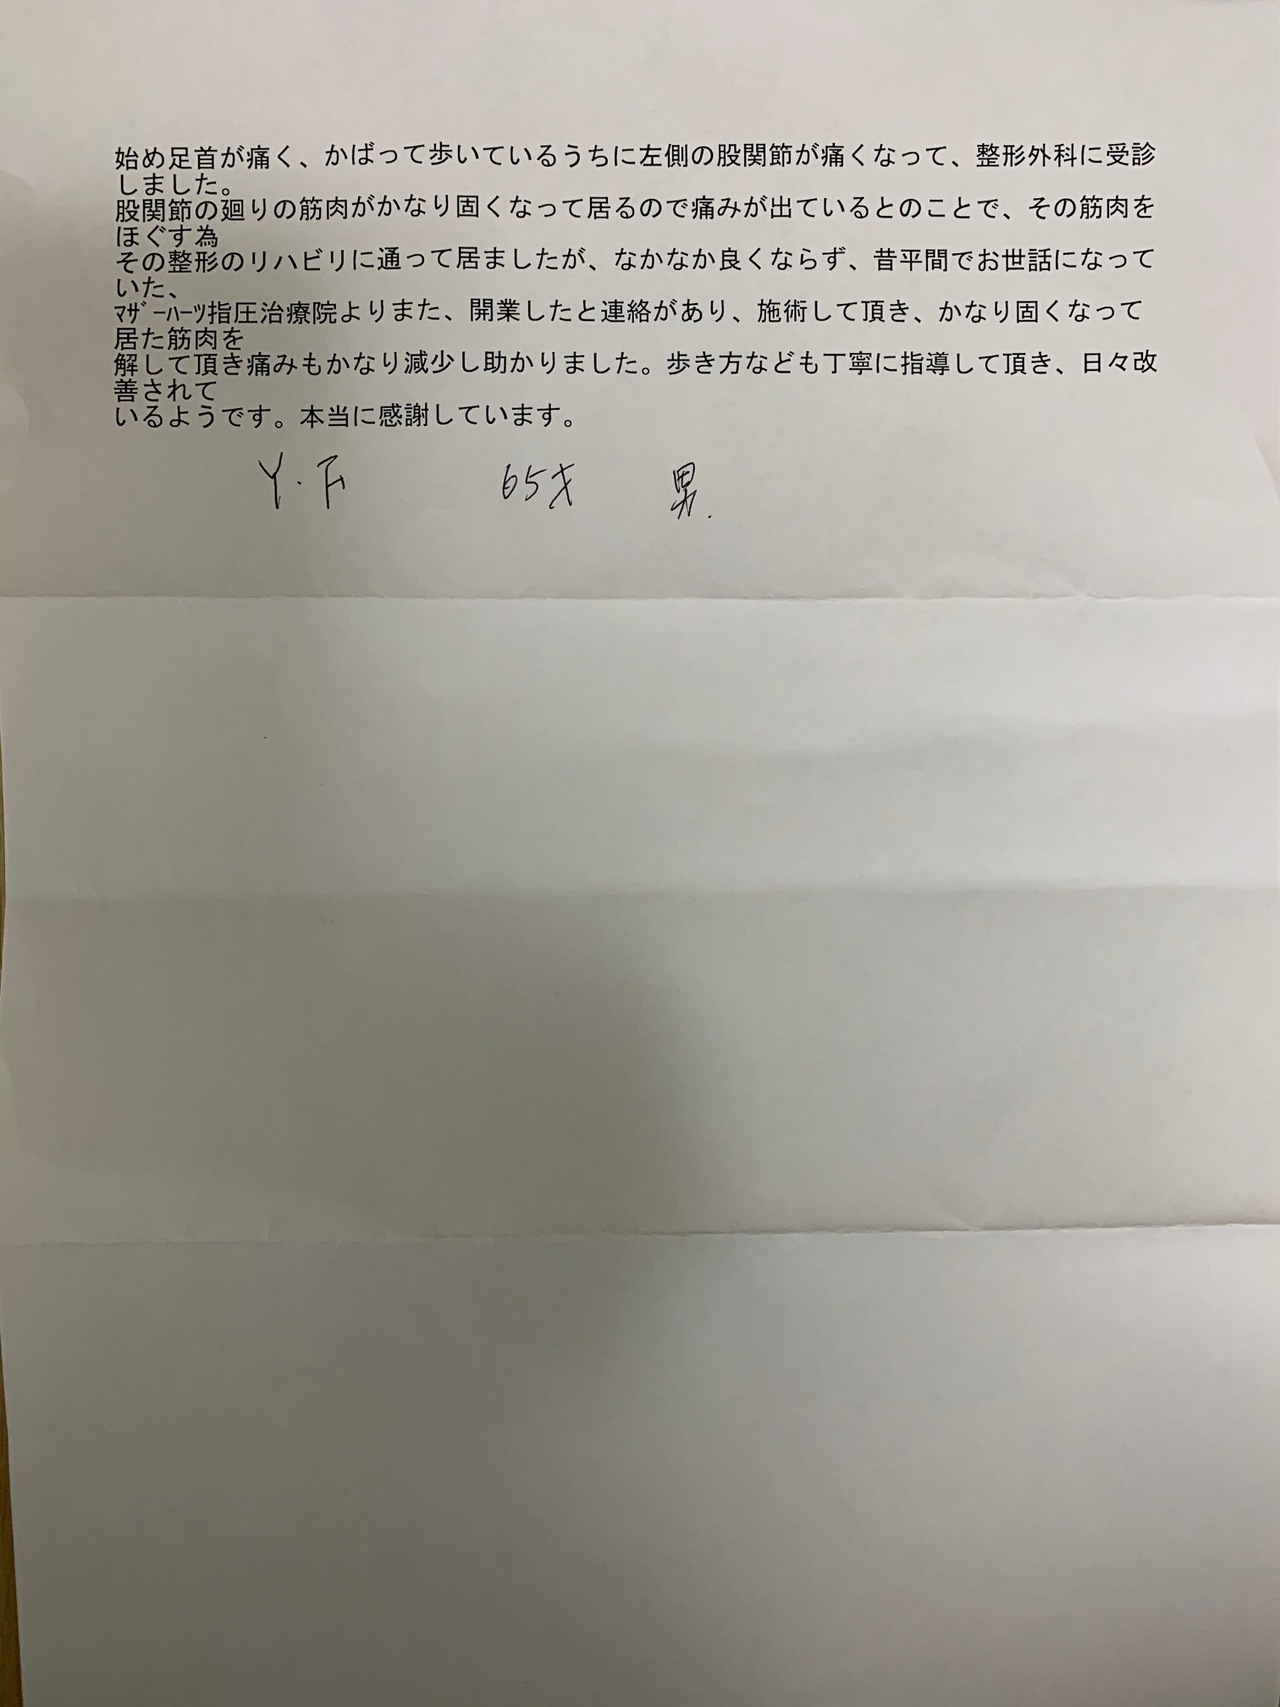 始め足首が痛く、かばって歩いているうちに左側の股関節が痛くなって、整形外科に受診
しました。
股関節の廻りの筋肉がかなり固くなって居るので痛みが出ているとのことで、その筋肉を
ほぐす為
その整形のリハビリに通って居ましたが、なかなか良くならず、昔平間でお世話になって
いた、
ﾏｻﾞｰﾊｰﾂ指圧治療院よりまた、開業したと連絡があり、施術して頂き、かなり固くなって
居た筋肉を
解して頂き痛みもかなり減少し助かりました。歩き方なども丁寧に指導して頂き、日々改
善されて
いるようです。本当に感謝しています。
Y.F 65才 男.